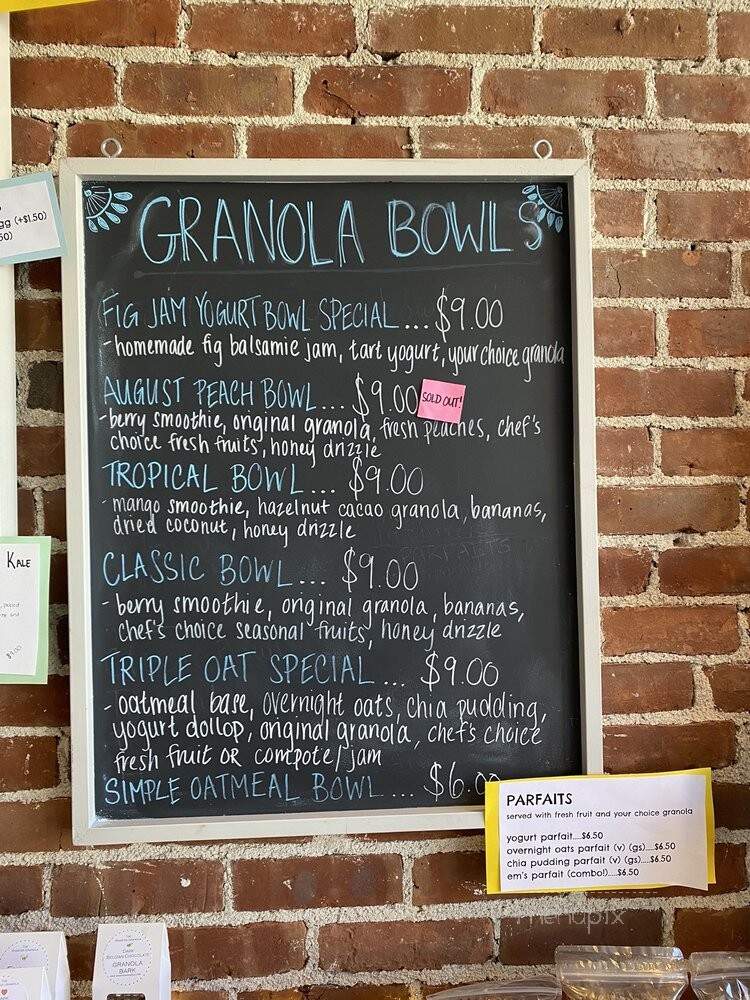 gg (+$1.50)
50)
GRANOLA BOWLS
FIG JAM YOGURT BOWL SPECIAL... $9.00
- homemade fig balsamic jam, tart yogurt, your choice granola
AUGUST PEACH BOWL.... $9.00
SOLD OUT!
- berry smoothie, original granola, fresh peaches, chef's
choice fresh fruits, honey drizzle
TROPICAL BOWL... $9.00
- mango smoothie, hazelnut cacao granola, bananas,
dried coconut, honey drizzle
CLASSIC BOWL... $9.00
- berry smoothie, original granola, bananas,
chef's choice seasonal fruits, honey drizzle
TRIPLE OAT SPECIAL... $9.00
- oatmeal base, overnight oats, chia pudding,
yogurt dollop, original granola, chef's choice
fresh fruit OR compote/jam
SIMPLE OATMEAL BOWL... $6.00
KALE
$9.00
PARFAITS
served with fresh fruit and your choice granola
yogurt parfait....$6.50
overnight oats parfait (v) (gs)....$6.50
chia pudding parfait (v) (gs)....$6.50
em's parfait (combo!)....$6.50
menupix
BELGIAN CHOCOLATE
GRANOLA
BARK